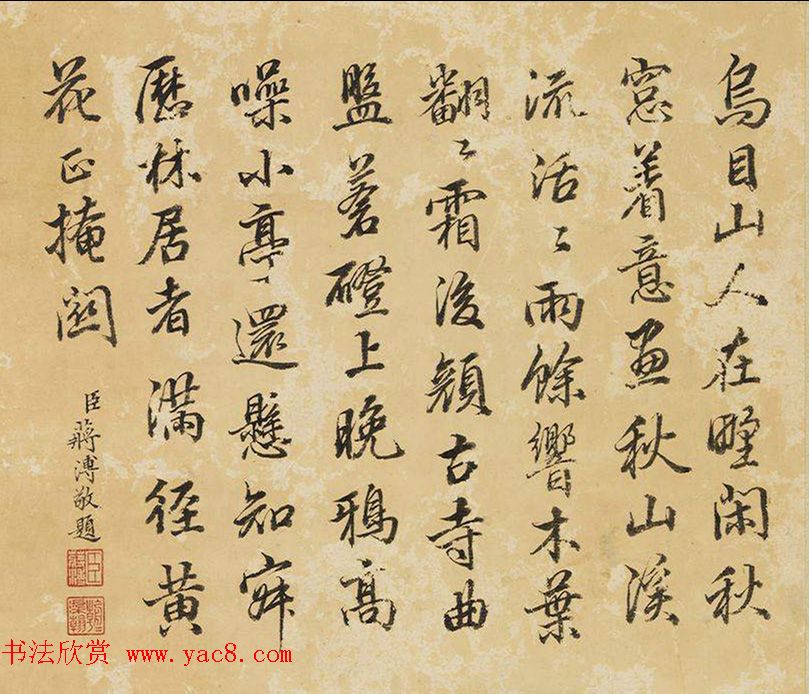 烏目山人在野閑秋
窓着意畫秋山溪
流活〻雨餘響木葉
翻〻霜後顏古寺曲
盤蒼磴上晚鴉高
噪小亭還懸知寂
歷林居者滿徑黃
花正掩關
臣蔣溥敬題
书法欣赏 www.yac8.com